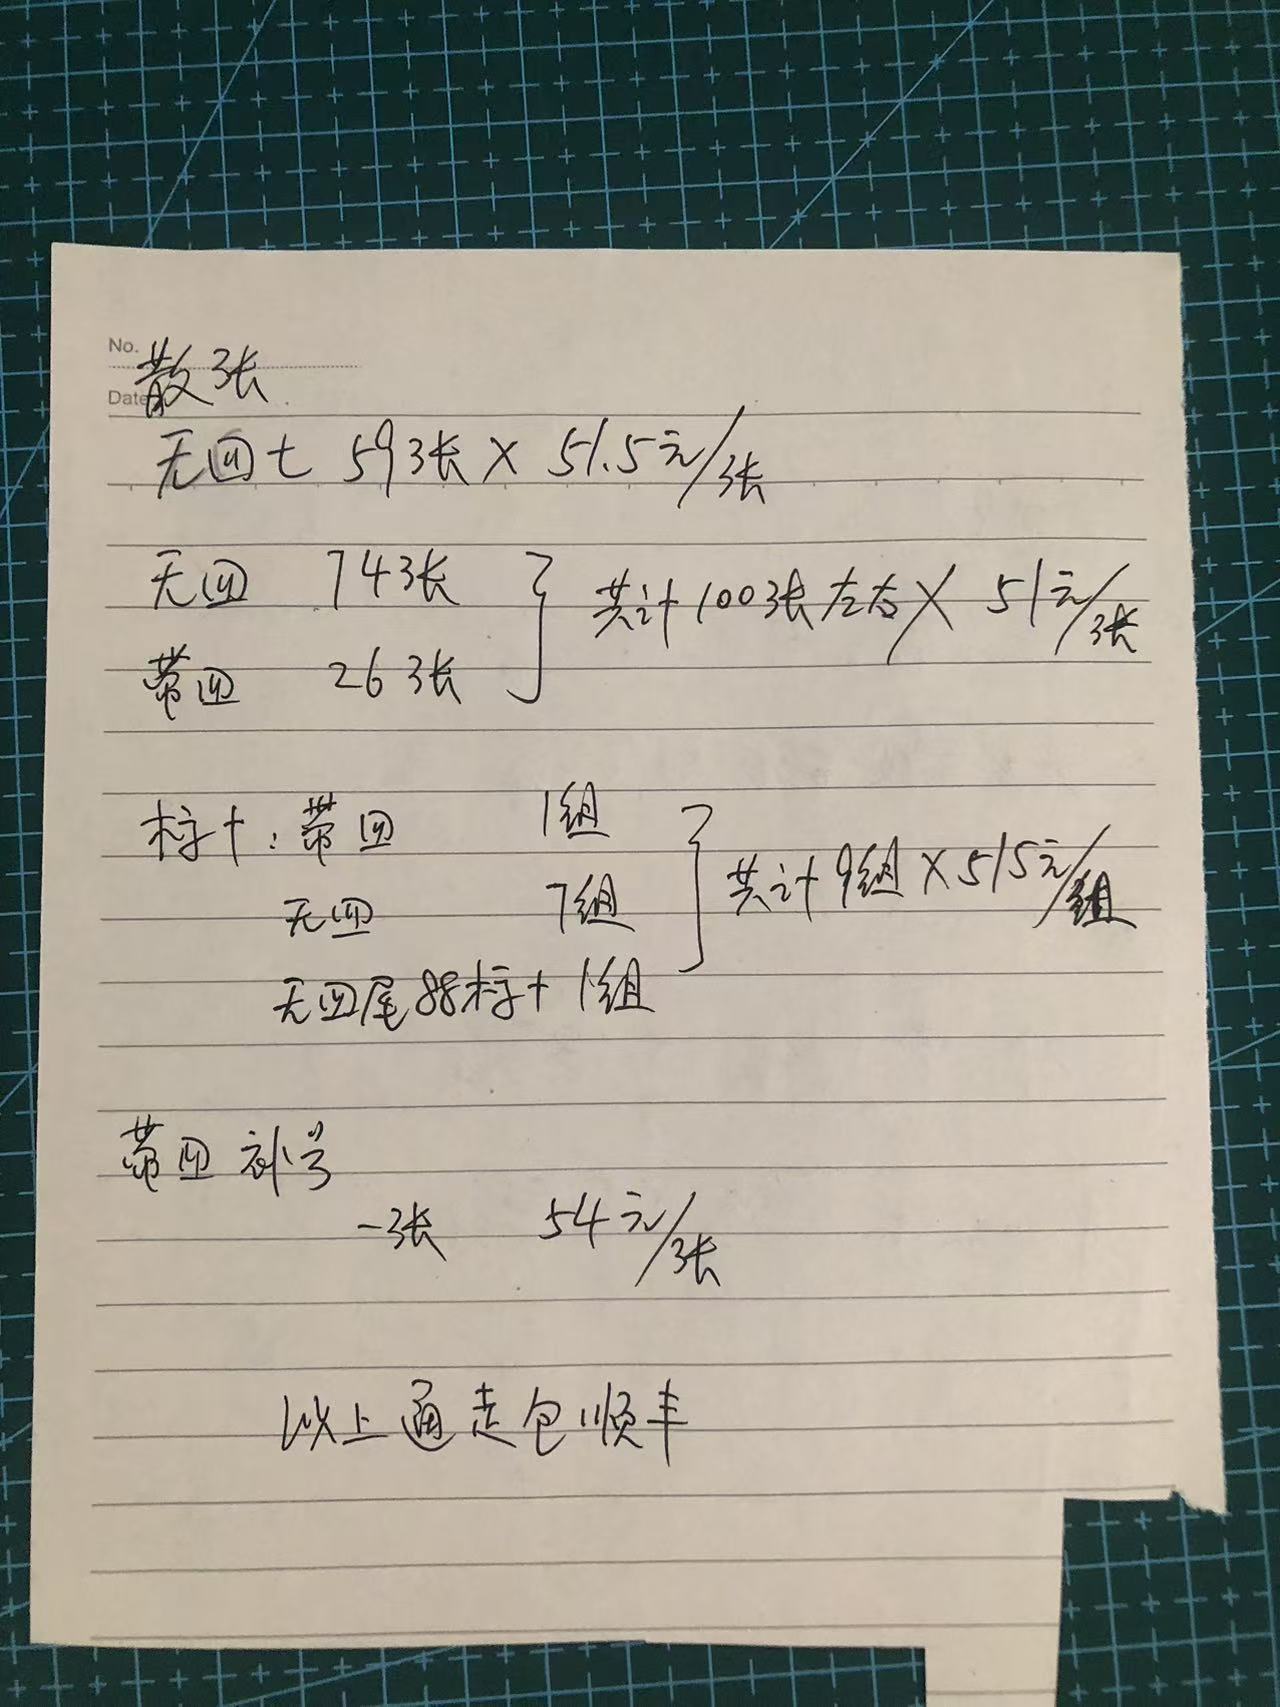 No.
Date
散张
无四七 59张 × 51.5元/张
无四 74张
带四 26张
共计100张左右 × 51元/张
标十：带四 1组
无四 7组
无四尾88标十 1组
共计9组 × 515元/组
带四补号
一张 54元/张
以上通走包顺丰